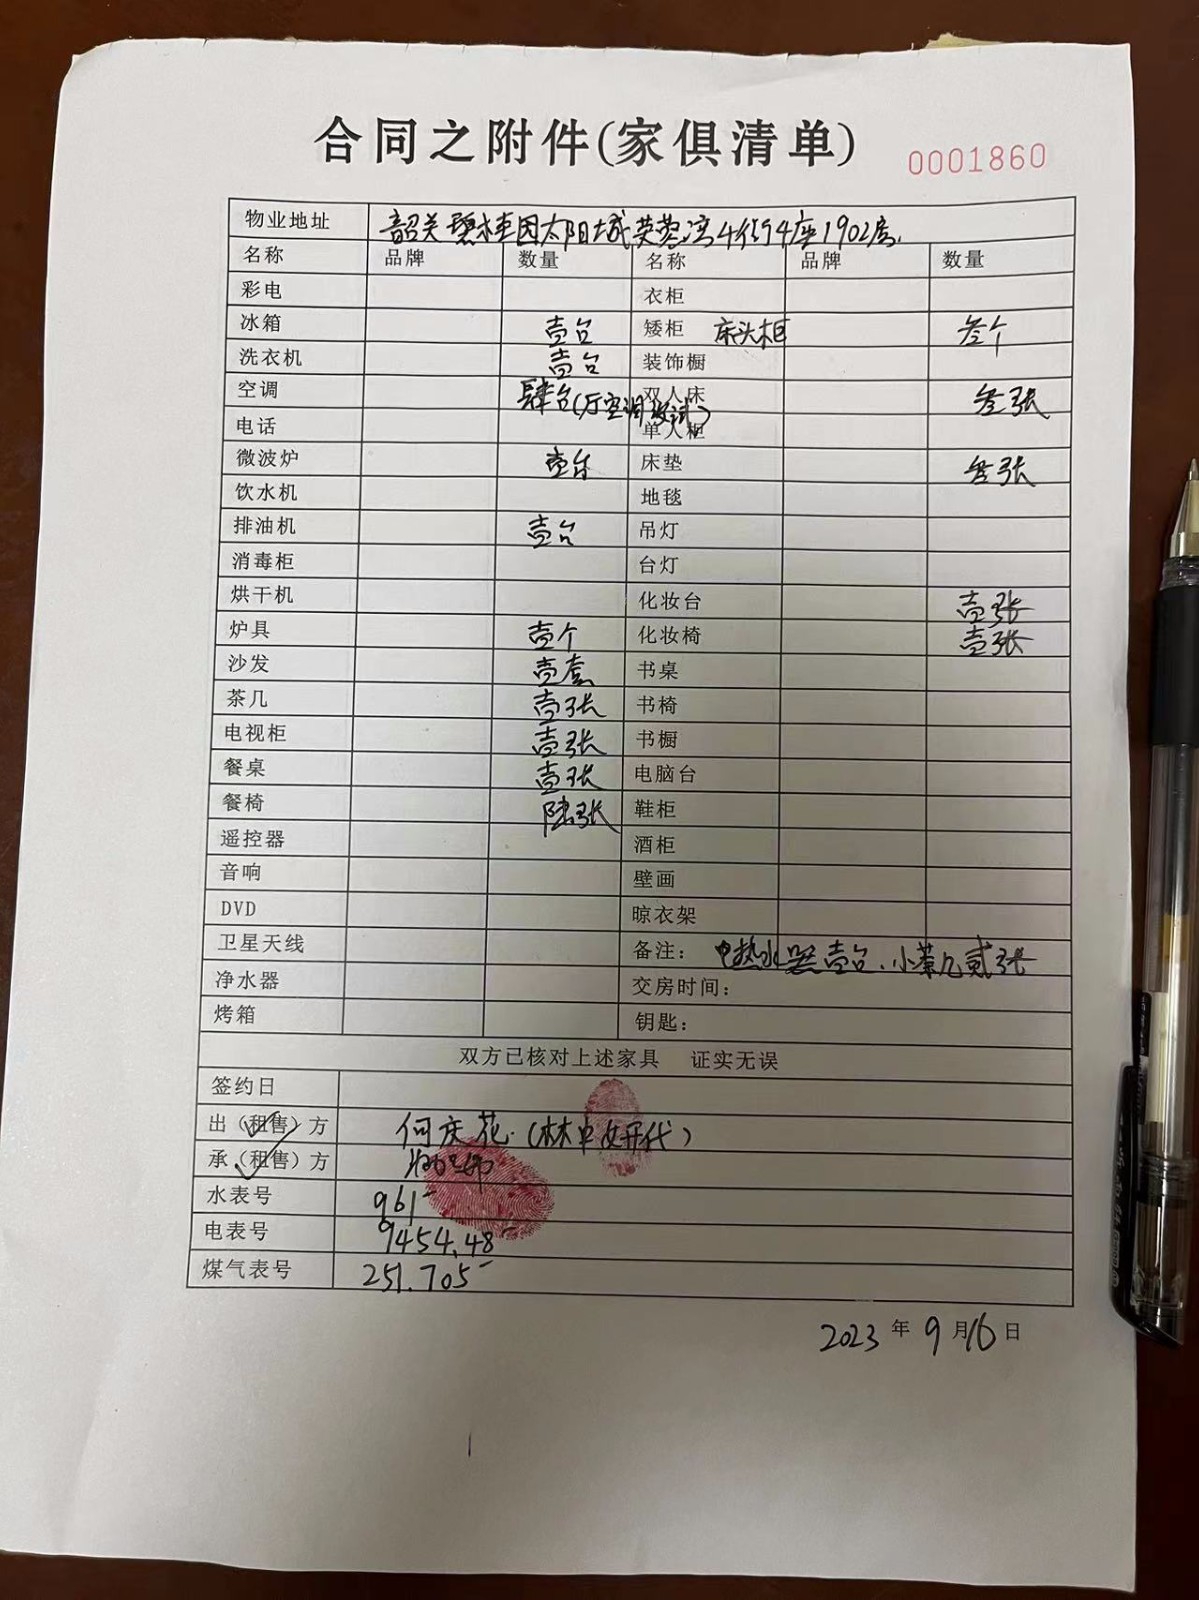 合同之附件(家俱清单)
0001860
物业地址 韶关碧桂园太阳城芙蓉湾4街94座1902房.
名称 品牌 数量 名称 品牌 数量
彩电 衣柜
冰箱 壹台 矮柜 床头柜 叁个
洗衣机 壹台 装饰橱
空调 肆台(厅空调没试) 双人床 叁张
电话 单人柜
微波炉 壹台 床垫 叁张
饮水机 地毯
排油机 壹台 吊灯
消毒柜 台灯
烘干机 化妆台 壹张
炉具 壹个 化妆椅 壹张
沙发 壹套 书桌
茶几 壹张 书椅
电视柜 壹张 书橱
餐桌 壹张 电脑台
餐椅 陆张 鞋柜
遥控器 酒柜
音响 壁画
DVD 晾衣架
卫星天线 备注： 电热水器壹台、小茶几贰张
净水器 交房时间：
烤箱 钥匙：
双方已核对上述家具 证实无误
签约日
出（租售）方 何庆花.(林 代)
承（租售）方
水表号 961
电表号 9454.48
煤气表号 251.705
2023 年 9 月 16 日